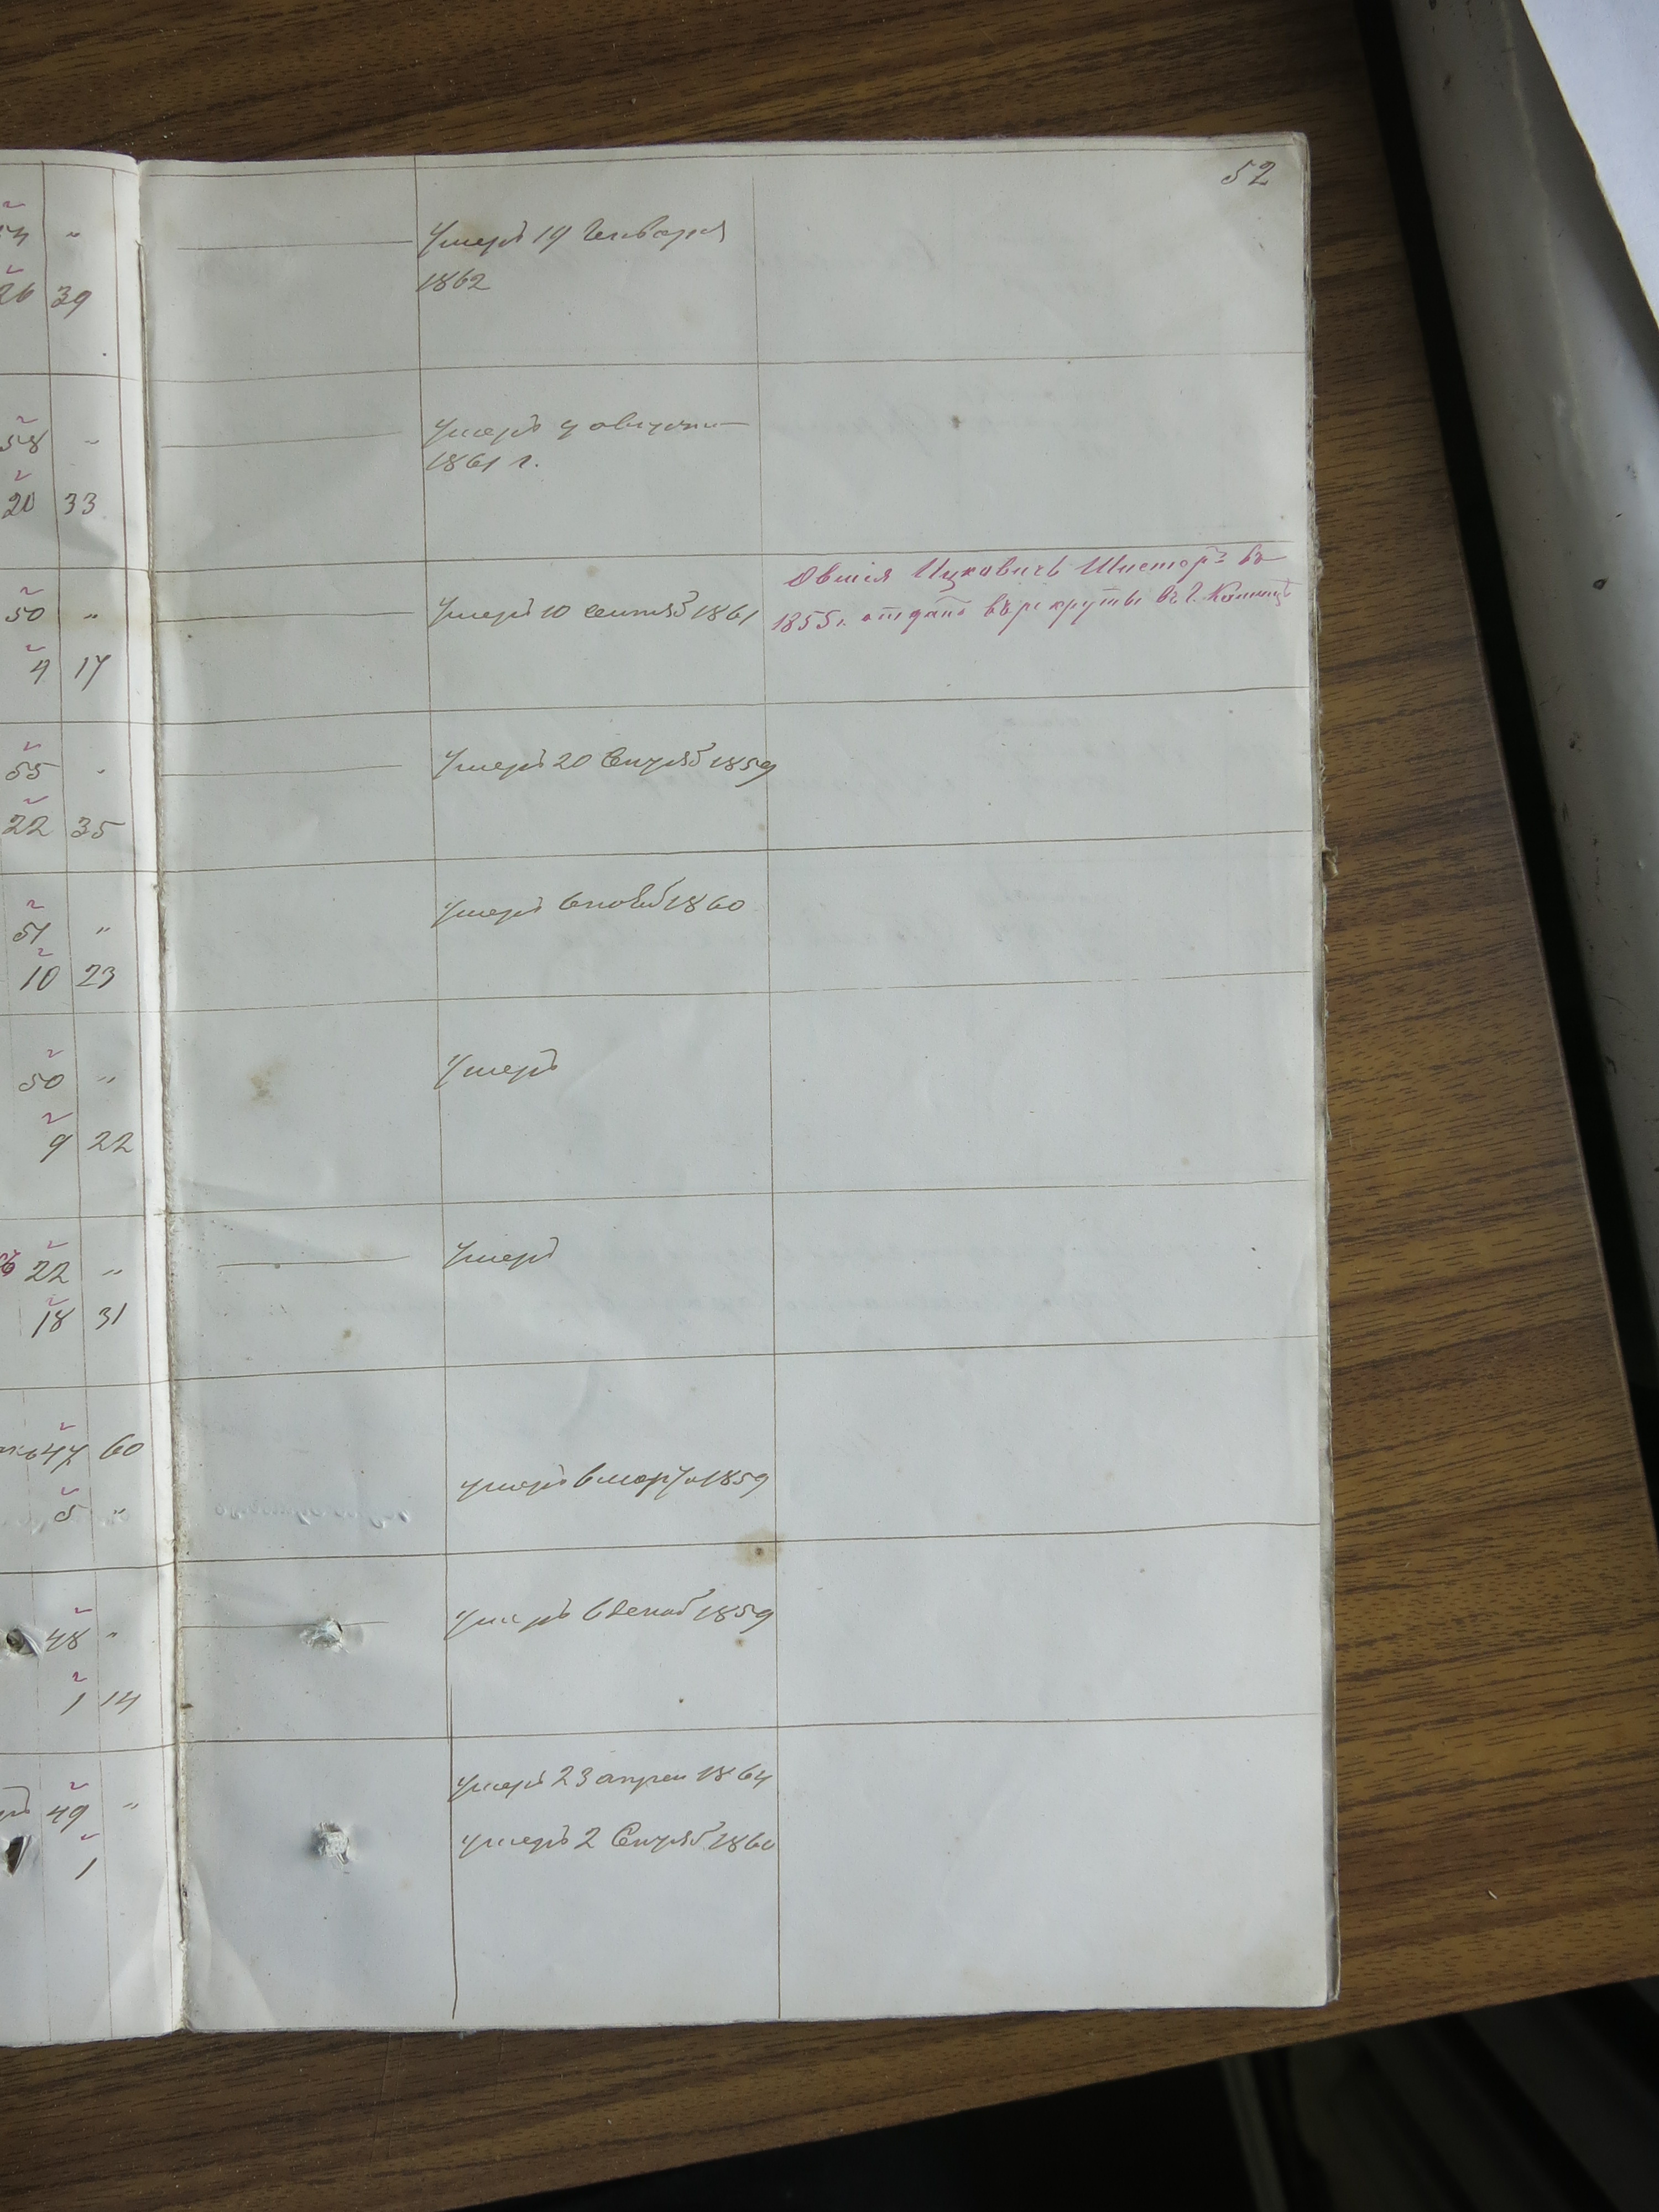 52
54 "
Умеръ 19 Генваря
26 39
1862
58 "
Умеръ 9 августа
1861 г.
20 33
50 "
Умеръ 10 сентяб 1861
Овшія Ицковичь Шистер въ
1855 г. отданъ въ рекруты въ г.
4 17
55 "
Умеръ 20 1859
22 35
51 "
Умеръ 1860
10 23
50 "
Умеръ
9 22
22 "
Умеръ
18 31
47 60
умеръ 6 марта 1859
5 "
48 "
Умеръ 6 декаб 1859
1 14
49 "
умеръ 23 апрел 1864
1
умеръ 2 1860